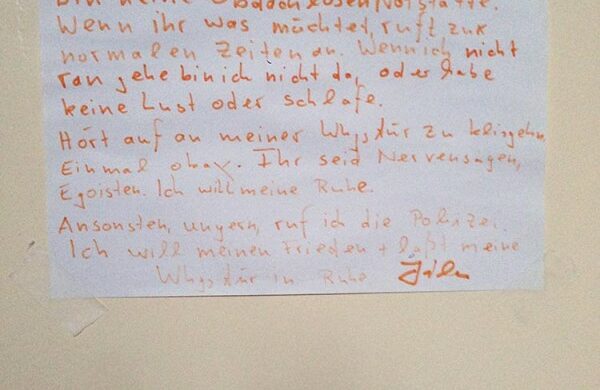 bin keine Obdachlosen/Notstätte.
Wenn ihr was möchtet, ruft zur
normalen Zeiten an. Wenn ich nicht
ran gehe bin ich nicht da, oder habe
keine Lust oder schlafe.
Hört auf an meiner Whgstür zu klingeln
Einmal okay. Ihr seid Nervensägen,
Egoisten. Ich will meine Ruhe.
Ansonsten, ungern, ruf ich die Polizei.
Ich will meinen Frieden + laßt meine
Whgstür in Ruhe